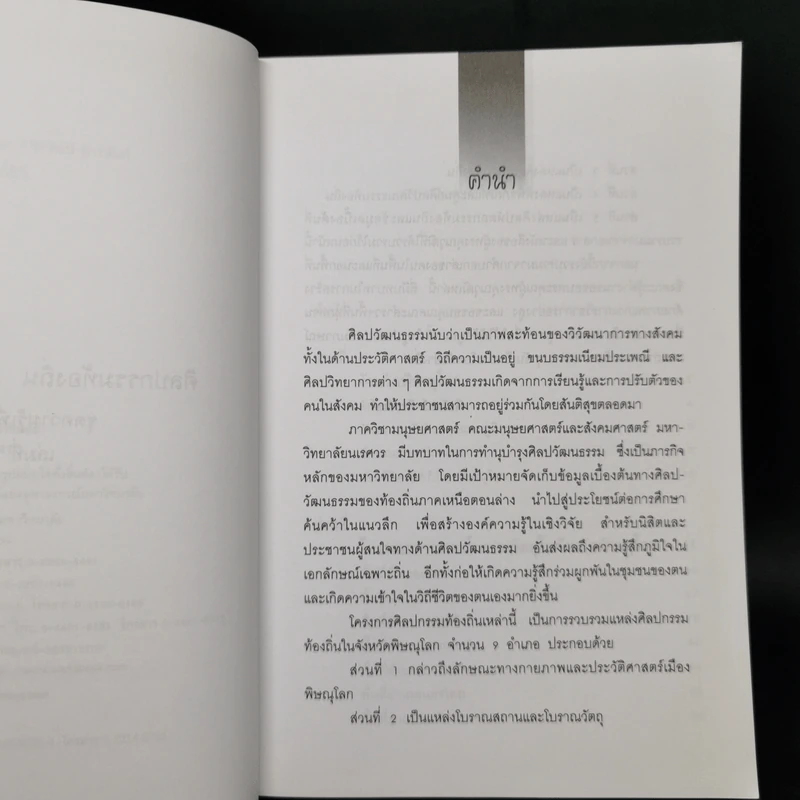 คำนำ
ศิลปวัฒนธรรมนับว่าเป็นภาพสะท้อนของวิวัฒนาการทางสังคม
ทั้งในด้านประวัติศาสตร์ วิถีความเป็นอยู่ ขนบธรรมเนียมประเพณี และ
ศิลปวิทยาการต่าง ๆ ศิลปวัฒนธรรมเกิดจากการเรียนรู้และการปรับตัวของ
คนในสังคม ทำให้ประชาชนสามารถอยู่ร่วมกันโดยสันติสุขตลอดมา
ภาควิชามนุษยศาสตร์ คณะมนุษยศาสตร์และสังคมศาสตร์ มหา-
วิทยาลัยนเรศวร มีบทบาทในการทำนุบำรุงศิลปวัฒนธรรม ซึ่งเป็นภารกิจ
หลักของมหาวิทยาลัย โดยมีเป้าหมายจัดเก็บข้อมูลเบื้องต้นทางศิลป-
วัฒนธรรมของท้องถิ่นภาคเหนือตอนล่าง นำไปสู่ประโยชน์ต่อการศึกษา
ค้นคว้าในแนวลึก เพื่อสร้างองค์ความรู้ในเชิงวิจัย สำหรับนิสิตและ
ประชาชนผู้สนใจทางด้านศิลปวัฒนธรรม อันส่งผลถึงความรู้สึกภูมิใจใน
เอกลักษณ์เฉพาะถิ่น อีกทั้งก่อให้เกิดความรู้สึกร่วมผูกพันในชุมชนของตน
และเกิดความเข้าใจในวิถีชีวิตของตนเองมากยิ่งขึ้น
โครงการศิลปกรรมท้องถิ่นเหล่านี้ เป็นการรวบรวมแหล่งศิลปกรรม
ท้องถิ่นในจังหวัดพิษณุโลก จำนวน 9 อำเภอ ประกอบด้วย
ส่วนที่ 1 กล่าวถึงลักษณะทางกายภาพและประวัติศาสตร์เมือง
พิษณุโลก
ส่วนที่ 2 เป็นแหล่งโบราณสถานและโบราณวัตถุ